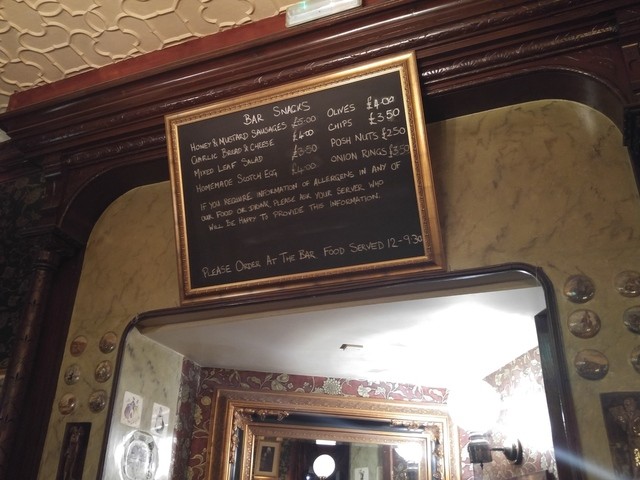 BAR SNACKS
HONEY & MUSTARD SAUSAGES £5.00
GARLIC BREAD & CHEESE £4.00
MIXED LEAF SALAD £3.50
HOMEMADE SCOTCH EGG £4.00
OLIVES £4.00
CHIPS £3.50
POSH NUTS £2.50
ONION RINGS £3.50
IF YOU REQUIRE INFORMATION OF ALLERGENS IN ANY OF
OUR FOOD OR PLEASE ASK YOUR SERVER WHO
WILL BE HAPPY TO PROVIDE THIS INFORMATION.
PLEASE ORDER AT THE BAR FOOD SERVED 12-9.30